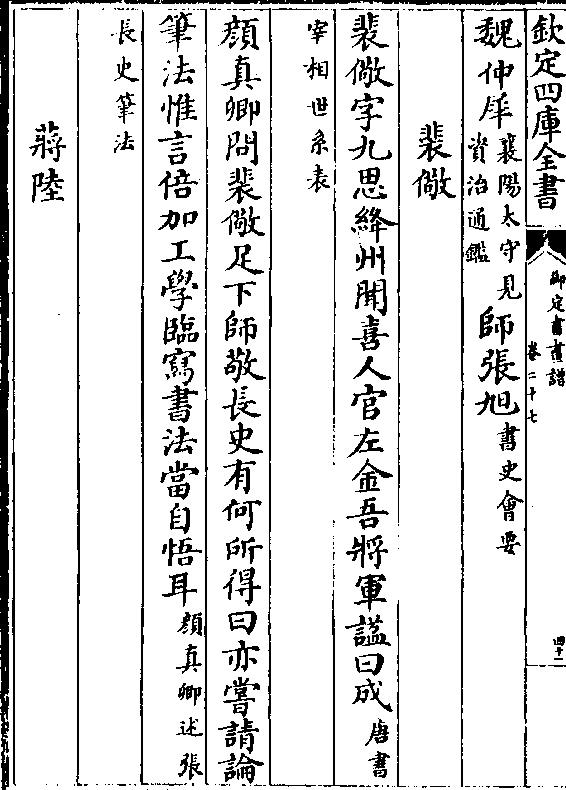 欽定四庫全書
御定書畫譜
卷二十七
四十二
魏仲犀襄陽太守見
資治通鑑
師張旭書史會要
裴儆
裴儆字九思絳州聞喜人官左金吾將軍諡曰成唐書
宰相世系表
顔真卿問裴儆足下師敬長史有何所得曰亦嘗請論
筆法惟言倍加工學臨寫書法當自悟耳顔真卿述張
長史筆法
蔣陸